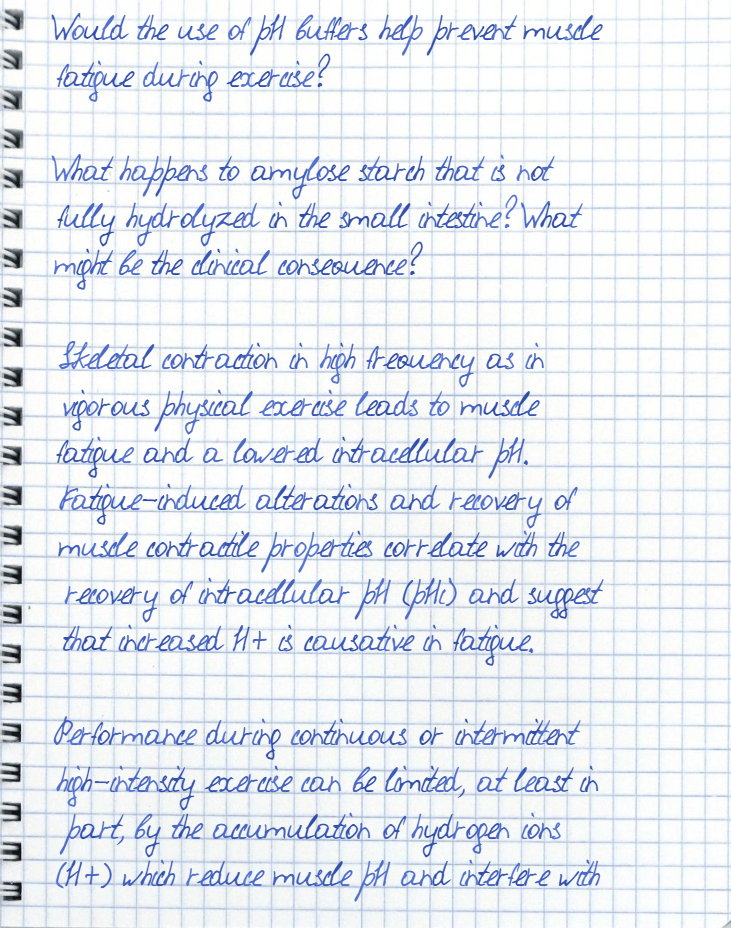 Would the use of pH buffers help prevent muscle
fatigue during exercise?
What happens to amylose starch that is not
fully hydrolyzed in the small intestine? What
might be the clinical consequence?
Skeletal contraction in high frequency as in
vigorous physical exercise leads to muscle
fatigue and a lowered intracellular pH.
Fatigue-induced alterations and recovery of
muscle contractile properties correlate with the
recovery of intracellular pH (pHi) and suggest
that increased H+ is causative in fatigue.
Performance during continuous or intermittent
high-intensity exercise can be limited, at least in
part, by the accumulation of hydrogen ions
(H+) which reduce muscle pH and interfere with